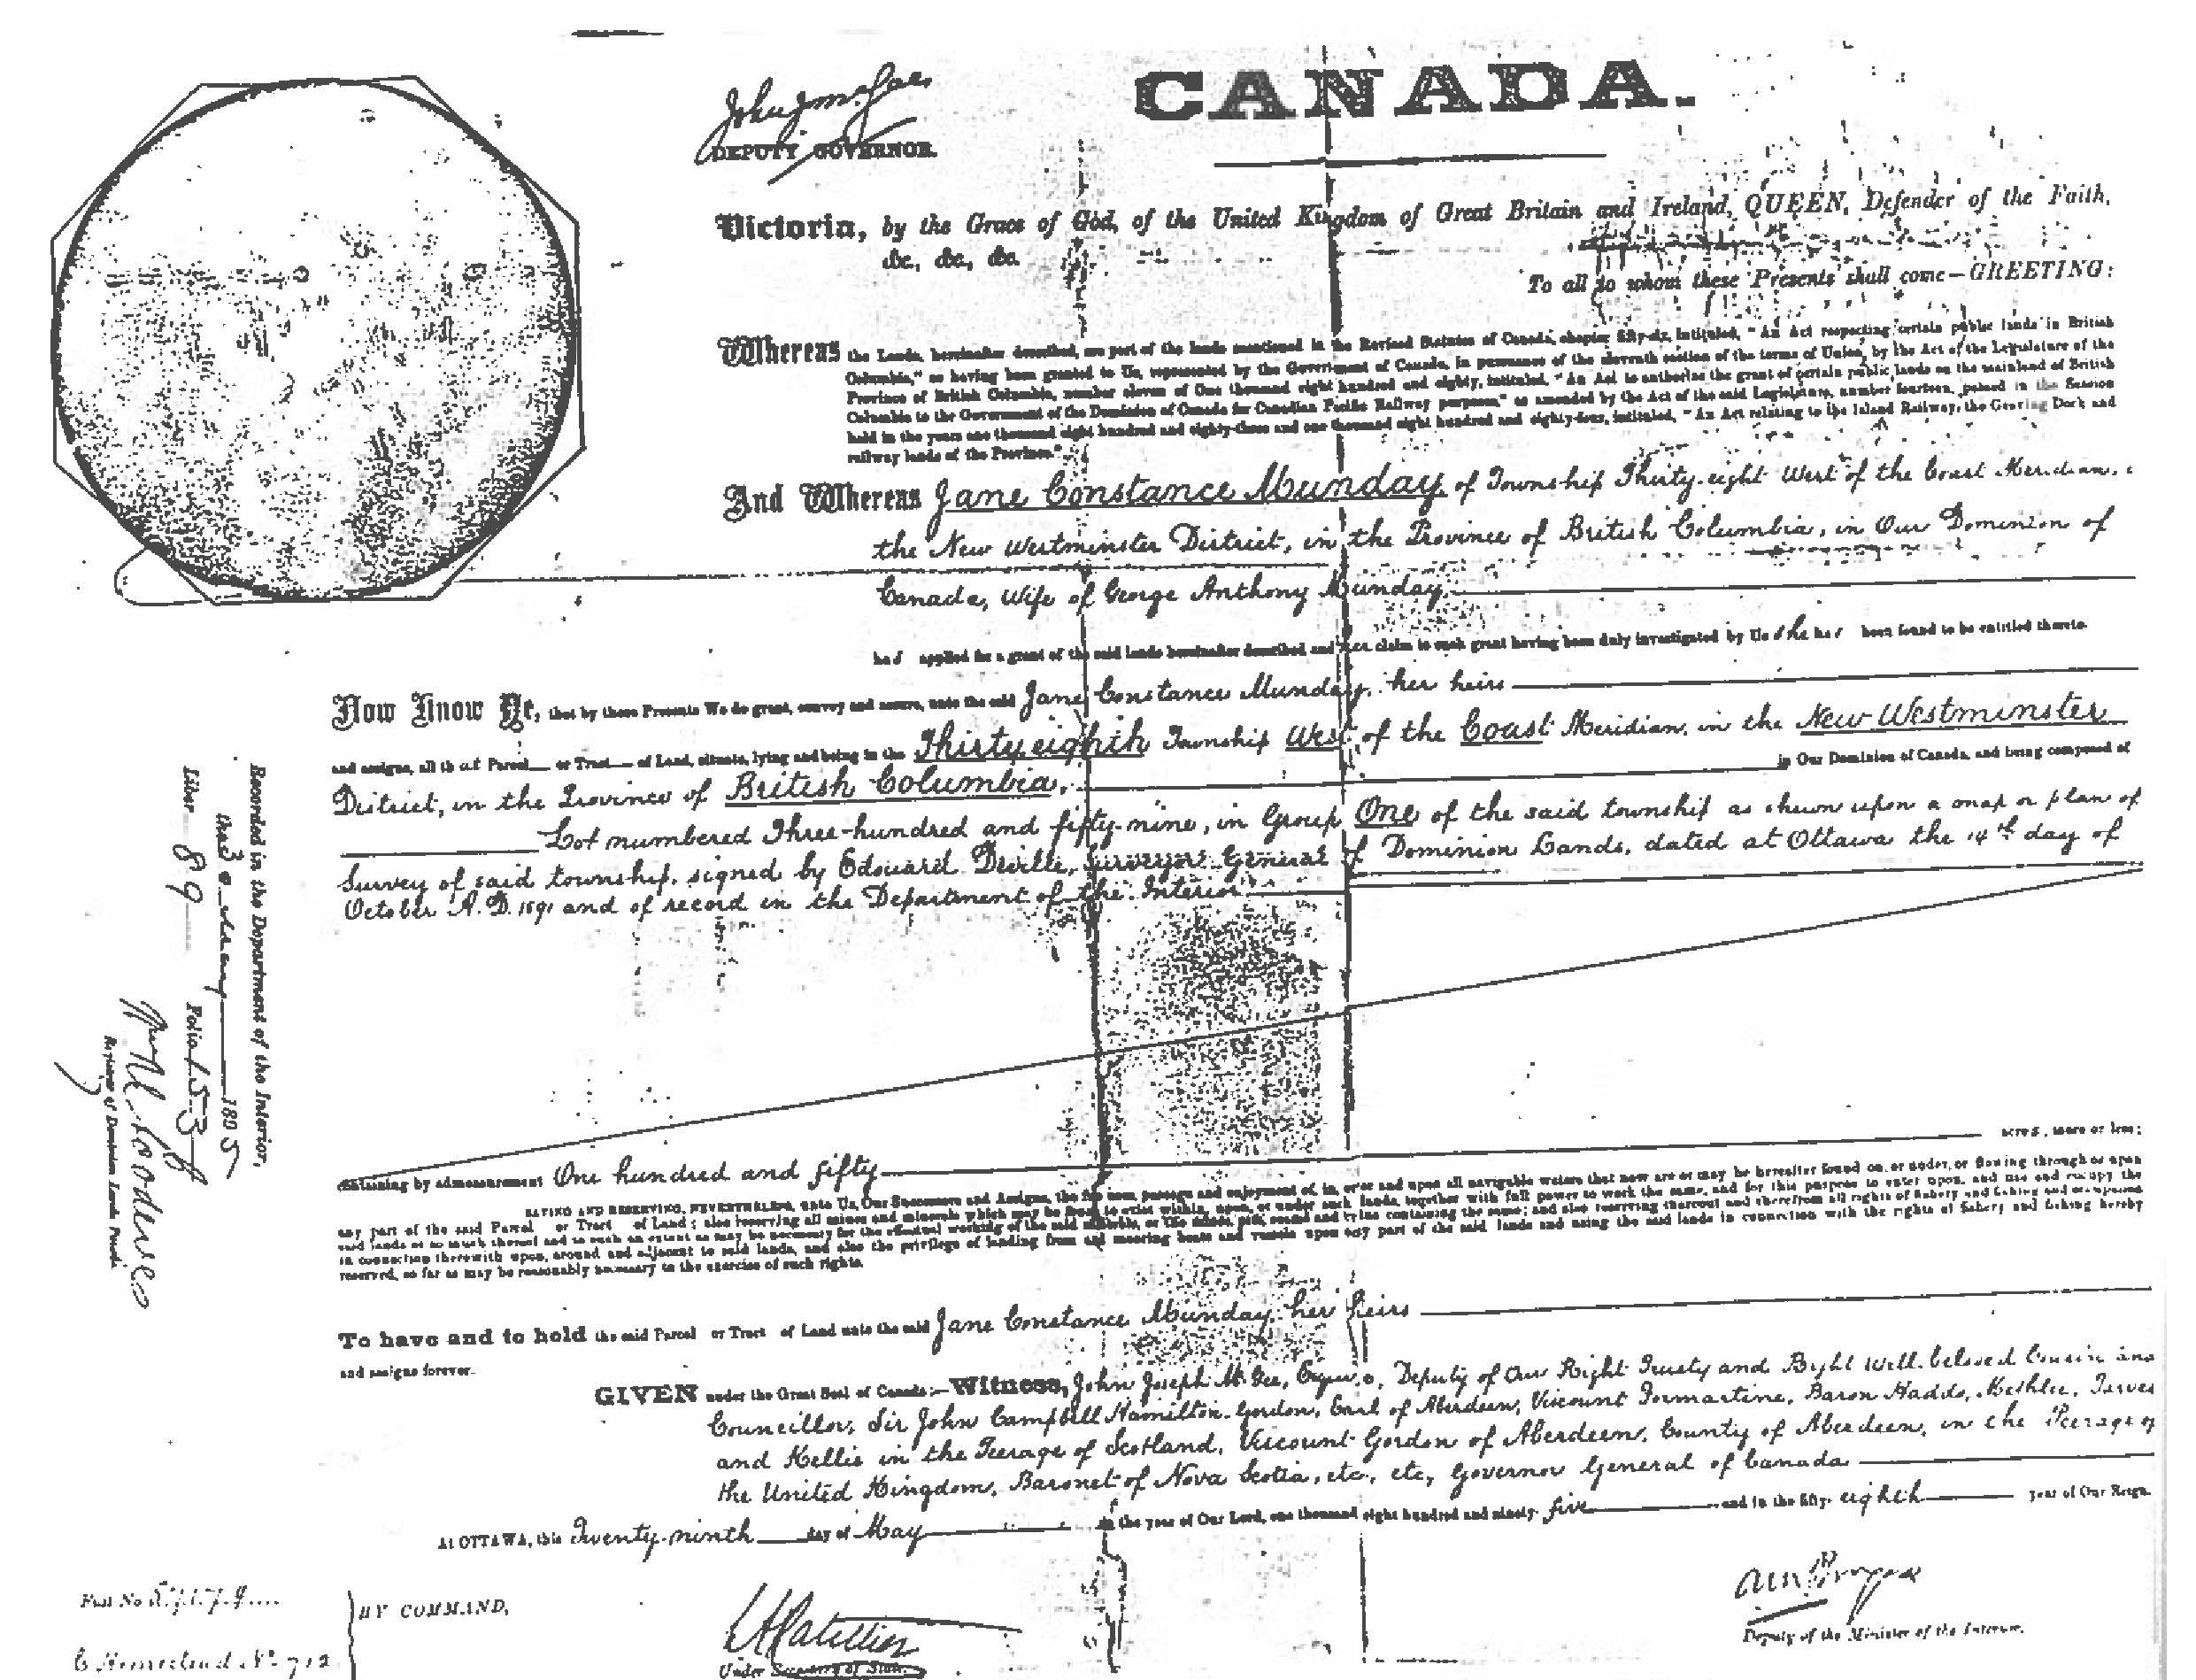 CANADA.
DEPUTY GOVERNOR.
Victoria, by the Grace of God, of the United Kingdom of Great Britain and Ireland, QUEEN, Defender of the Faith,
&c., &c., &c.
To all to whom these Presents shall come—GREETING:
Whereas the Lands, hereinafter described, are part of the lands mentioned in the Revised Statutes of Canada, chapter fifty-six, intituled, "An Act respecting certain public lands in British
Columbia," as having been granted to Us, represented by the Government of Canada, in pursuance of the eleventh section of the terms of Union, by the Act of the Legislature of the
Province of British Columbia, number eleven of One thousand eight hundred and eighty, intituled, "An Act to authorise the grant of certain public lands on the mainland of British
Columbia to the Government of the Dominion of Canada for Canadian Pacific Railway purposes," as amended by the Act of the said Legislature, number fourteen, passed in the Session
held in the years one thousand eight hundred and eighty-three and one thousand eight hundred and eighty-four, intituled, "An Act relating to the Island Railway, the Graving Dock and
railway lands of the Province."
And Whereas Jane Constance Munday of Township Thirty-eight West of the Coast Meridian,
the New Westminster District, in the Province of British Columbia, in Our Dominion of
Canada, Wife of George Anthony Munday,
has applied for a grant of the said lands hereinafter described and her claim to such grant having been duly investigated by Us she has been found to be entitled thereto.
Now Know Ye, that by these Presents We do grant, convey and assure, unto the said Jane Constance Munday, her heirs
and assigns, all that Parcel or Tract of Land, situate, lying and being in the Thirty eighth Township West of the Coast Meridian, in the New Westminster
District, in the Province of British Columbia, in Our Dominion of Canada, and being composed of
Lot numbered Three-hundred and fifty-nine, in Group One of the said township as shewn upon a map or plan of
Survey of said township, signed by Edouard Deville, Surveyor General of Dominion Lands, dated at Ottawa the 14th day of
October A.D. 1891 and of record in the Department of the Interior
containing by admeasurement One hundred and fifty acres, more or less;
SAVING AND RESERVING, NEVERTHELESS, unto Us, Our Successors and Assigns, the free use, passage and enjoyment of, in, over and upon all navigable waters that now are or may be hereafter found on, or under, or flowing through or upon
any part of the said Parcel or Tract of Land; also reserving all mines and minerals which may be found to exist within, upon, or under such lands, together with full power to work the same, and for this purpose to enter upon, and use and occupy the
said lands or so much thereof and to such an extent as may be necessary for the effectual working of the said minerals, or the mines, pits, seams and veins containing the same; and also reserving thereout and therefrom all rights of fishery and fishing and occupation
in connection therewith upon, around and adjacent to said lands, and also the privilege of landing from and mooring boats and vessels upon any part of the said lands and using the said lands in connection with the rights of fishery and fishing hereby
reserved, so far as may be reasonably necessary to the exercise of such rights.
To have and to hold the said Parcel or Tract of Land unto the said Jane Constance Munday, her heirs
and assigns forever.
GIVEN under the Great Seal of Canada:—Witness, John Joseph McGee, Esquire, Deputy of Our Right Trusty and Right Well-beloved Cousin and
Councillor, Sir John Campbell Hamilton-Gordon, Earl of Aberdeen, Viscount Formartine, Baron Haddo, Methlic, Tarves
and Kellie in the Peerage of Scotland, Viscount Gordon of Aberdeen, County of Aberdeen, in the Peerage of
the United Kingdom, Baronet of Nova Scotia, etc, etc, Governor General of Canada
At OTTAWA, this Twenty-ninth day of May in the year of Our Lord, one thousand eight hundred and ninety-five and in the fifty-eighth year of Our Reign.
BY COMMAND,
Under Secretary of State.
Deputy of the Minister of the Interior.
Homestead No 712
Recorded in the Department of the Interior,
1895
Liber 89 Folio 153
Registrar of Dominion Lands Patents